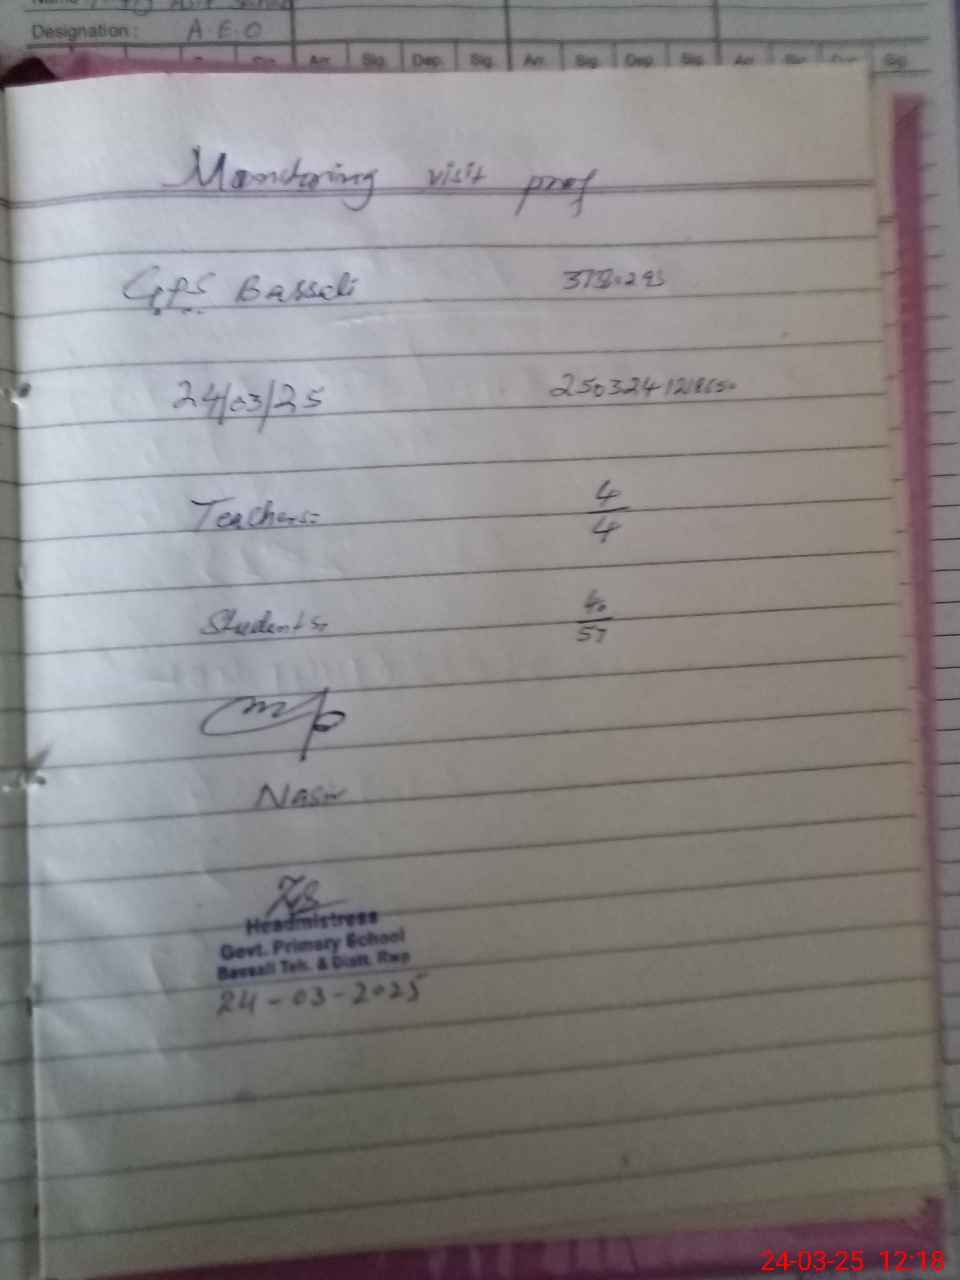 Designation : A.E.O
Arr. Sig. Dep. Sig. Arr. Sig. Dep. Sig. Arr. Sig. Dep. Sig.
Monitoring visit prof
GPS Bassali
24/03/25 250324
Teachers:- 4/4
Students:- 40/57
Nasir
Headmistress
Govt. Primary School
Bassali Teh. & Distt. Rwp
24-03-2025
24-03-25 12:18